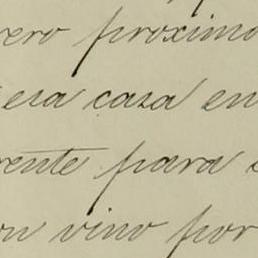 rero proximo
era casa en
rente para
on vino por